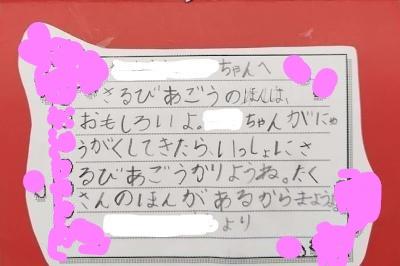 ちゃんへ
さるびあごうのほんは、
おもしろいよ。ちゃんがにゅ
うがくしてきたら、いっしょにさ
るびあごうかりようね。たく
さんのほんがあるからまようよ。
より